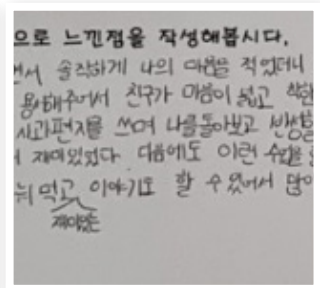 으로 느낀점을 작성해봅시다.
면서 솔직하게 나의 마음을 적었더니
용서해주어서 친구가 마음이 넓고 착한
사과편지를 쓰며 나를돌아보고 반성할
재미있었다 다음에도 이런 수업을
눠 먹고 이야기도 할 수 있어서 많이
재미있는